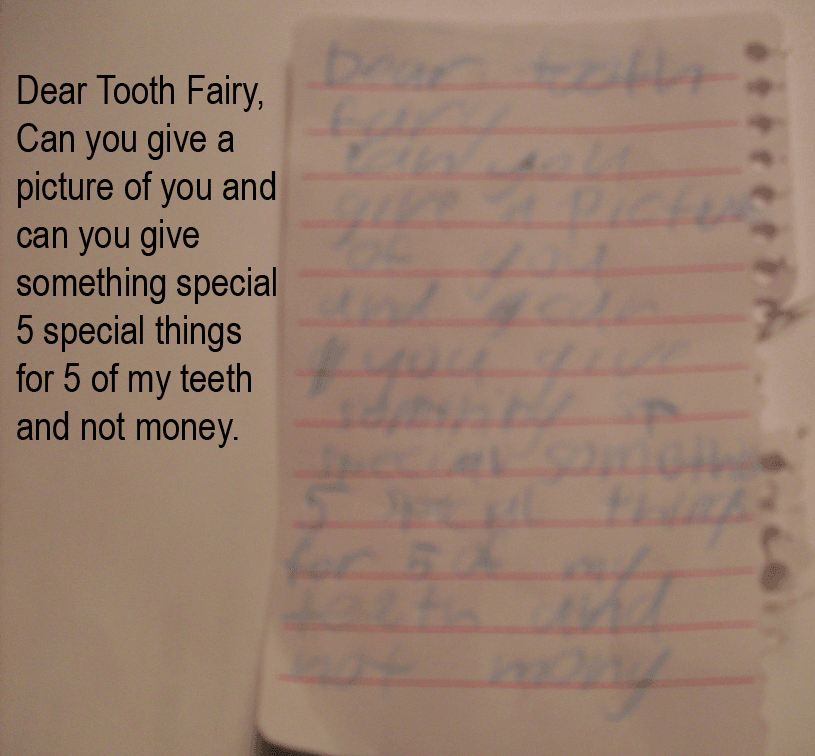 Dear Tooth Fairy,
Can you give a
picture of you and
can you give
something special
5 special things
for 5 of my teeth
and not money.
Dear tooth
fairy
can you
give a Picture
of you
and
you give
special
5 things
for 5 of my
and
not mony